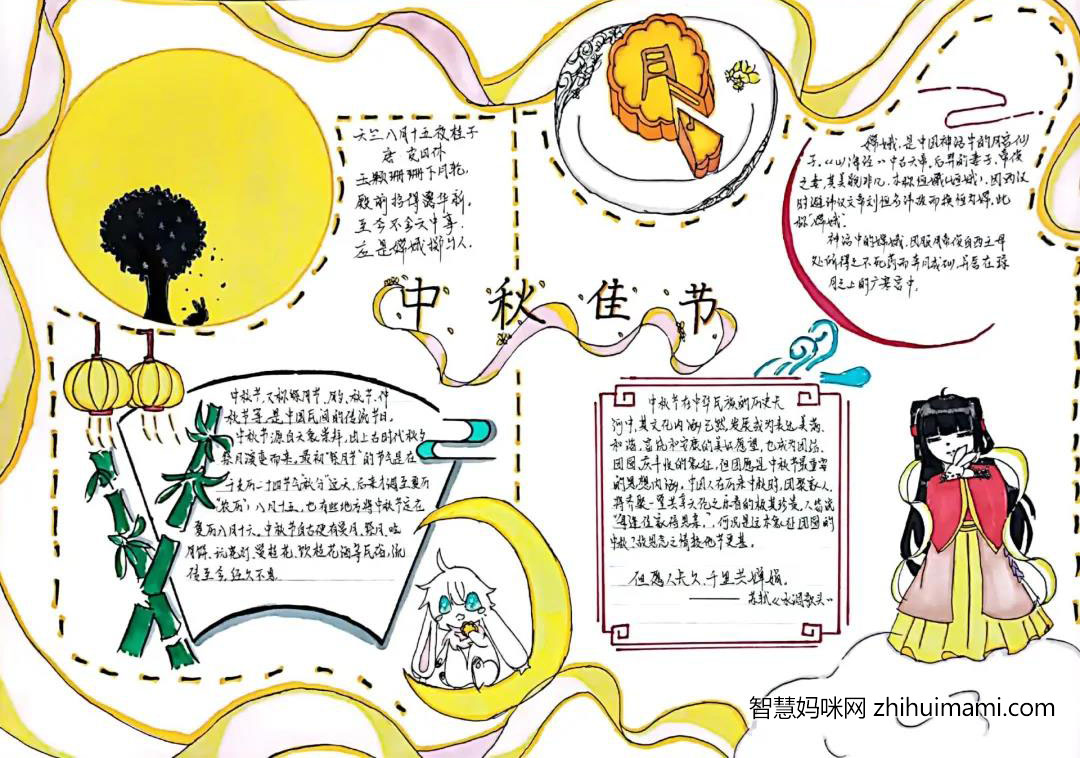 天竺八月十五夜桂子
唐 皮日休
玉颗珊珊下月轮,
殿前拾得露华新。
至今不会天中事,
应是嫦娥掷与人。
月
嫦娥,是中国神话中的月宫仙
子。《山海经》中
之妻,其美貌非凡,本称姮娥
时避讳汉文帝刘恒名讳改而
称"嫦娥"。
神话中的嫦娥,因服用 自西王母
处所得之不死药而奔月成仙,
月之上的广寒宫中。
中秋佳节
中秋节,又称祭月节、
秋节等,是中国民间的传统节日。
中秋节源自天象崇拜,由上古时代秋夕
祭月演变而来。最初"祭月节"的节气是在
干支历二十四节气"秋分"这天,后来才调至夏历
(农历)八月十五,也有些地方将中秋节定在
夏历八月十六。中秋节自古便有祭月、赏月、吃
月饼、玩花灯、赏桂花、饮桂花酒等民俗,流
传至今,经久不息。
中秋节在中华民族的历史长
河中,其文化内涵已然发展成为表达美满、
和谐、富饶和安康的美好愿望,也成为团结、
团圆、庆丰收的象征,但团愿是中秋节最重要
的思想内涵。中国人在历来中秋时,团聚家人,
"每逢佳节倍思亲",何况是这本象征团圆的
中秋?故思念之情较他节更甚。
但愿人长久,千里共婵娟。
——苏轼《水调歌头》
智慧妈咪网 zhihuimami.com